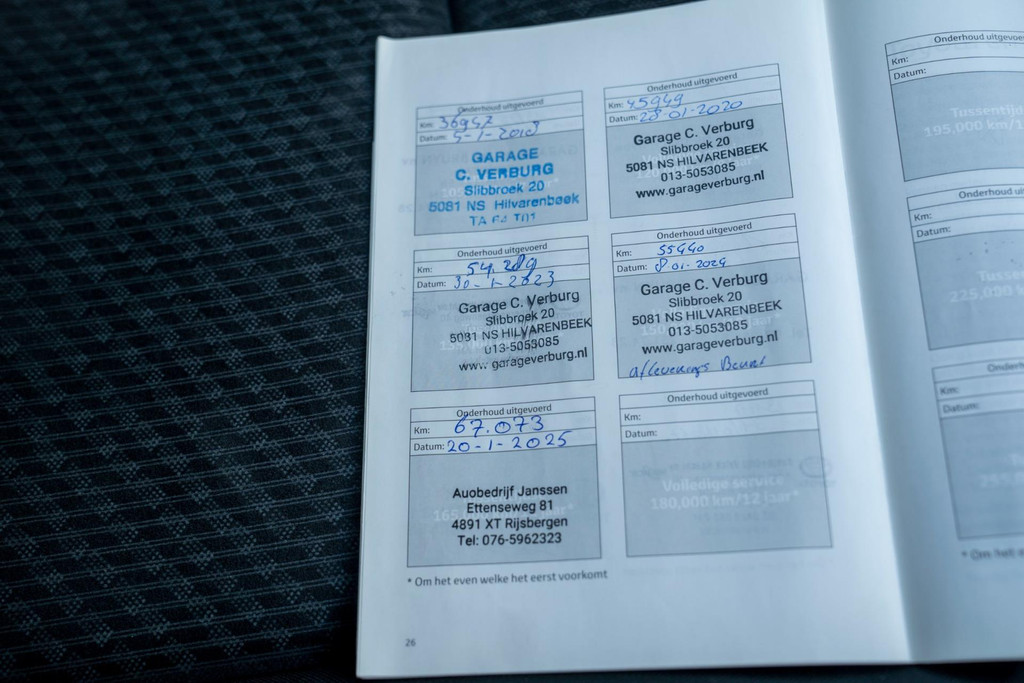 Onderhoud uitgevoerd
Km: 36942
Datum: 5-1-2018
GARAGE
C. VERBURG
Slibbroek 20
5081 NS Hilvarenbeek
Onderhoud uitgevoerd
Km: 45949
Datum: 28-01-2020
Garage C. Verburg
Slibbroek 20
5081 NS HILVARENBEEK
013-5053085
www.garageverburg.nl
Onderhoud uitgevoerd
Km: 54.289
Datum: 30-1-2023
Garage C. Verburg
Slibbroek 20
5081 NS HILVARENBEEK
013-5053085
www.garageverburg.nl
Onderhoud uitgevoerd
Km: 55440
Datum: 8 01-2024
Garage C. Verburg
Slibbroek 20
5081 NS HILVARENBEEK
013-5053085
www.garageverburg.nl
afleverings Beurt
Onderhoud uitgevoerd
Km: 67.073
Datum: 20-1-2025
Auobedrijf Janssen
Ettenseweg 81
4891 XT Rijsbergen
Tel: 076-5962323
Onderhoud uitgevoerd
Km:
Datum:
Volledige service
180,000 km/12 jaar*
* Om het even welke het eerst voorkomt
26
Onderhoud uitgevoe
Km:
Datum:
Tussentijd
195,000 km/1
Onderhoud ui
Km:
Datum:
Tusse
225,000
Km:
Datum:
* Om het e